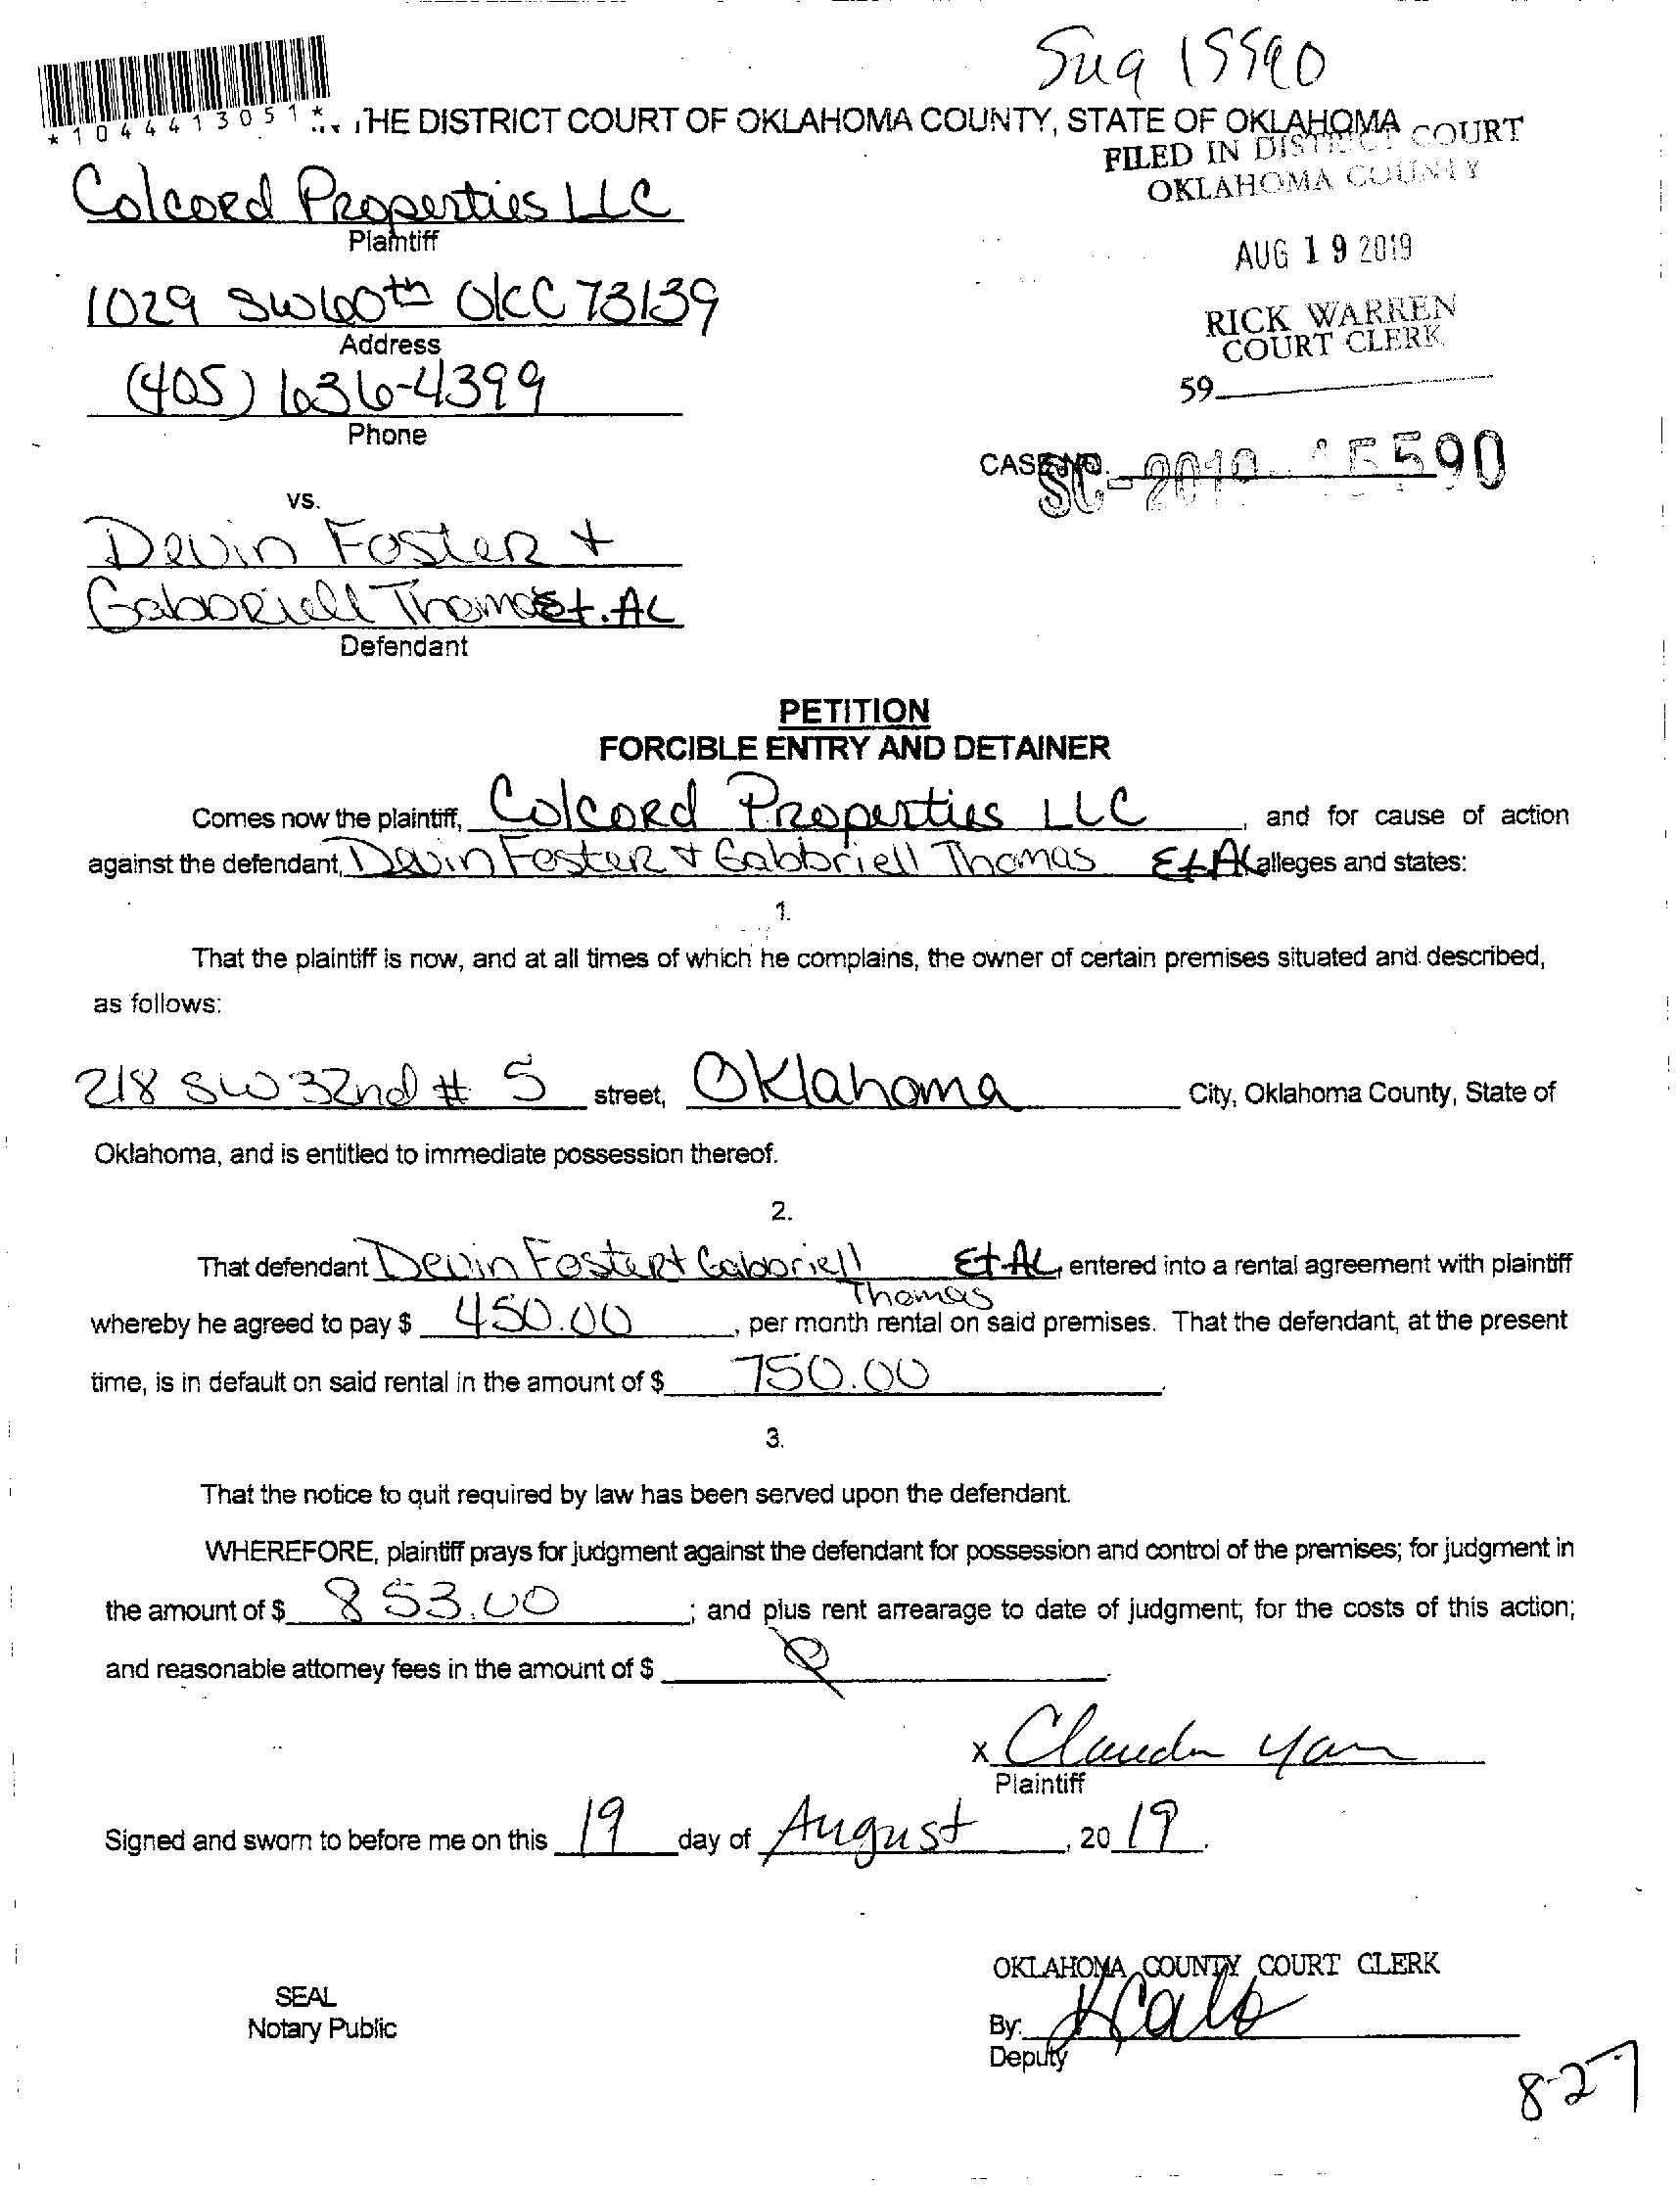 Suq 15590
*1044413051*
THE DISTRICT COURT OF OKLAHOMA COUNTY, STATE OF OKLAHOMA
FILED IN DISTRICT COURT
OKLAHOMA COUNTY
Colcord Properties LLC
Plaintiff
AUG 19 2019
1029 SW 60th OKC 73139
Address
RICK WARREN
COURT CLERK
(405) 636-4399
59
Phone
CASE NO. SC-2019-15590
vs.
Devin Foster +
Gabbriell Thomas Et. AL
Defendant
PETITION
FORCIBLE ENTRY AND DETAINER
Comes now the plaintiff, Colcord Properties LLC, and for cause of action
against the defendant, Devin Foster + Gabbriell Thomas Et AL alleges and states:
1.
That the plaintiff is now, and at all times of which he complains, the owner of certain premises situated and described,
as follows:
218 SW 32nd # 5 street, Oklahoma City, Oklahoma County, State of
Oklahoma, and is entitled to immediate possession thereof.
2.
That defendant Devin Foster + Gabbriell Thomas Et AL, entered into a rental agreement with plaintiff
whereby he agreed to pay $ 450.00, per month rental on said premises. That the defendant, at the present
time, is in default on said rental in the amount of $ 750.00.
3.
That the notice to quit required by law has been served upon the defendant.
WHEREFORE, plaintiff prays for judgment against the defendant for possession and control of the premises; for judgment in
the amount of $ 853.00; and plus rent arrearage to date of judgment; for the costs of this action;
and reasonable attorney fees in the amount of $ 0.
x Claudia
Plaintiff
Signed and sworn to before me on this 19 day of August, 2019.
OKLAHOMA COUNTY COURT CLERK
SEAL
Notary Public
By:
Deputy
8-27